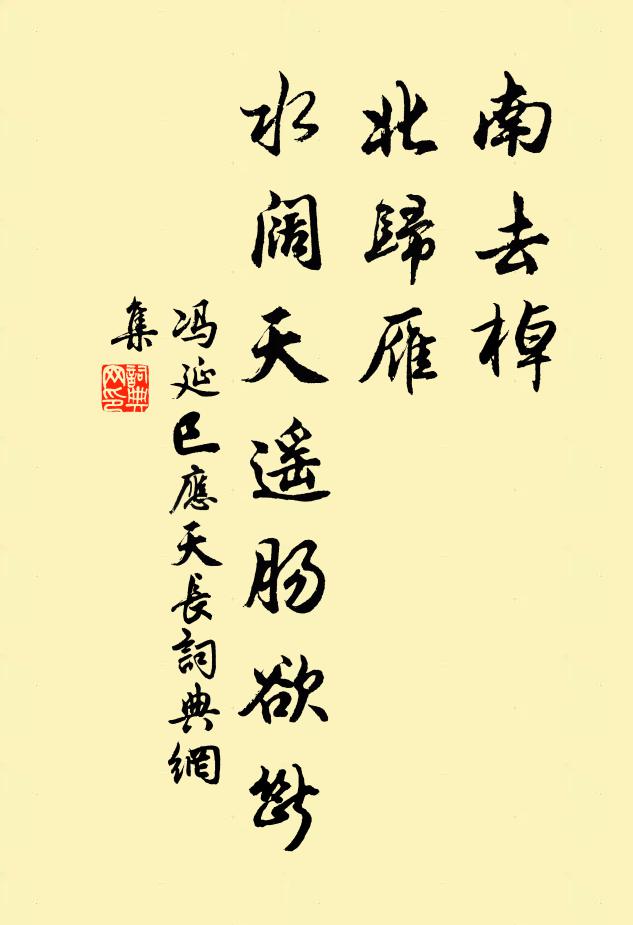 南去棹
北歸雁
水阔天遥肠欲斷
冯延巳應天長詞典網
集
詞典
网印